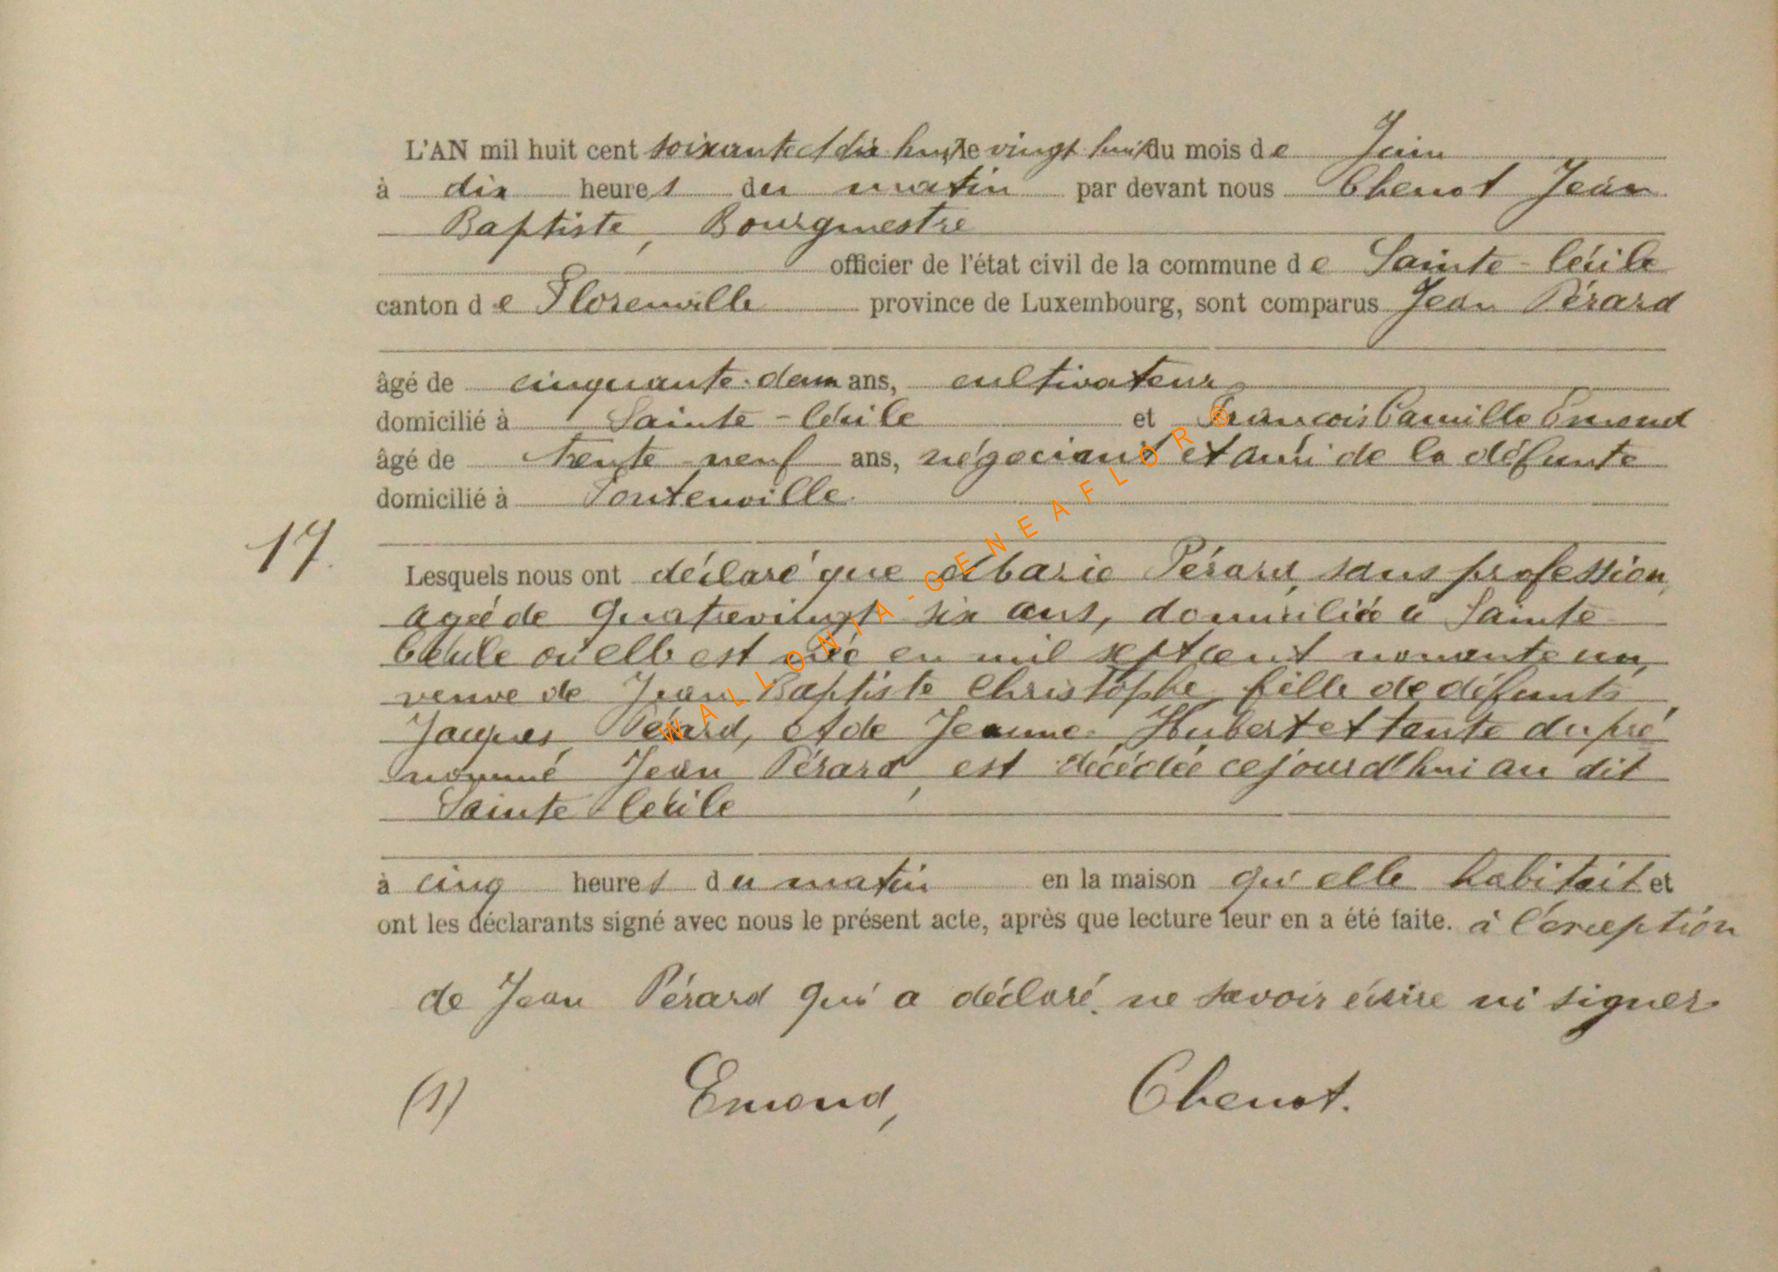 L'AN mil huit cent soixante et dix huit, le vingt huit du mois de Juin
à dix heures du matin par devant nous Chenot Jean
Baptiste, Bourgmestre
officier de l'état civil de la commune de Sainte-Cécile
canton de Florenville province de Luxembourg, sont comparus Jean Pérard
âgé de cinquante-deux ans, cultivateur
domicilié à Sainte-Cécile et François Camille Emond
âgé de trente-neuf ans, négociant et ami de la défunte
domicilié à Fontenoille.
17.
Lesquels nous ont déclaré que Marie Pérard, sans profession,
agée de quatrevingt six ans, domiciliée à Sainte
Cécile où elle est née en mil sept cent nonante un,
veuve de Jean Baptiste Christophe, fille de défunts
Jacques Pérard, et de Jeanne Hubert et tante du pré
nommé Jean Pérard, est décédée cejourd'hui au dit
Sainte Cécile
à cinq heures du matin en la maison qu'elle habitait et
ont les déclarants signé avec nous le présent acte, après que lecture leur en a été faite. à l'exception
de Jean Pérard qui a déclaré ne savoir écrire ni signer
(1) Emond, Chenot.
WALLONIA-GENEAFLOR©